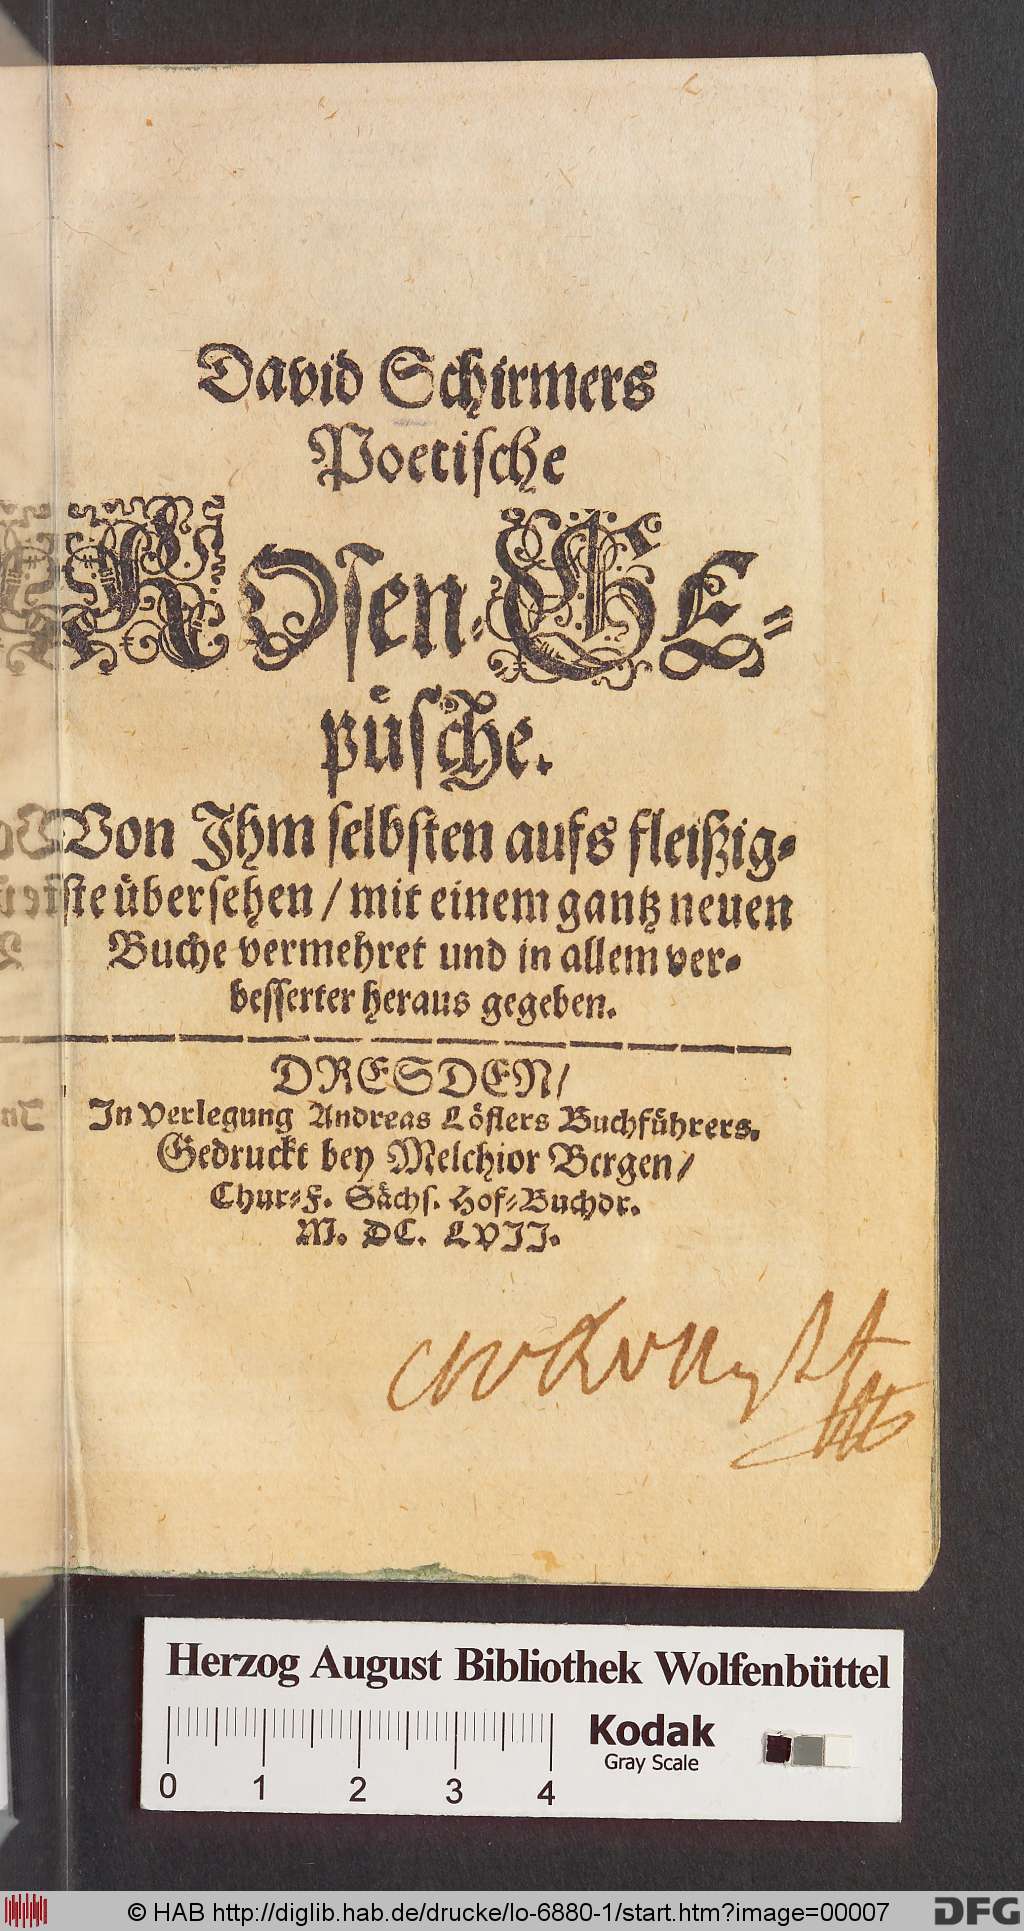 David Schirmers
Poetiſche
ROſen-GE-
püſche.
Von Ihm ſelbſten aufs fleißig-
ſte überſehen / mit einem gantz neuen
Buche vermehret und in allem ver-
beſſerter heraus gegeben.
DRESDEN /
In Verlegung Andreas Löflers Buchführers.
Gedruckt bey Melchior Bergen /
Chur-F. Sächſ. Hof-Buchdr.
M. DC. LVII.
Herzog August Bibliothek Wolfenbüttel
Kodak
Gray Scale
0 1 2 3 4
© HAB http://diglib.hab.de/drucke/lo-6880-1/start.htm?image=00007
DFG